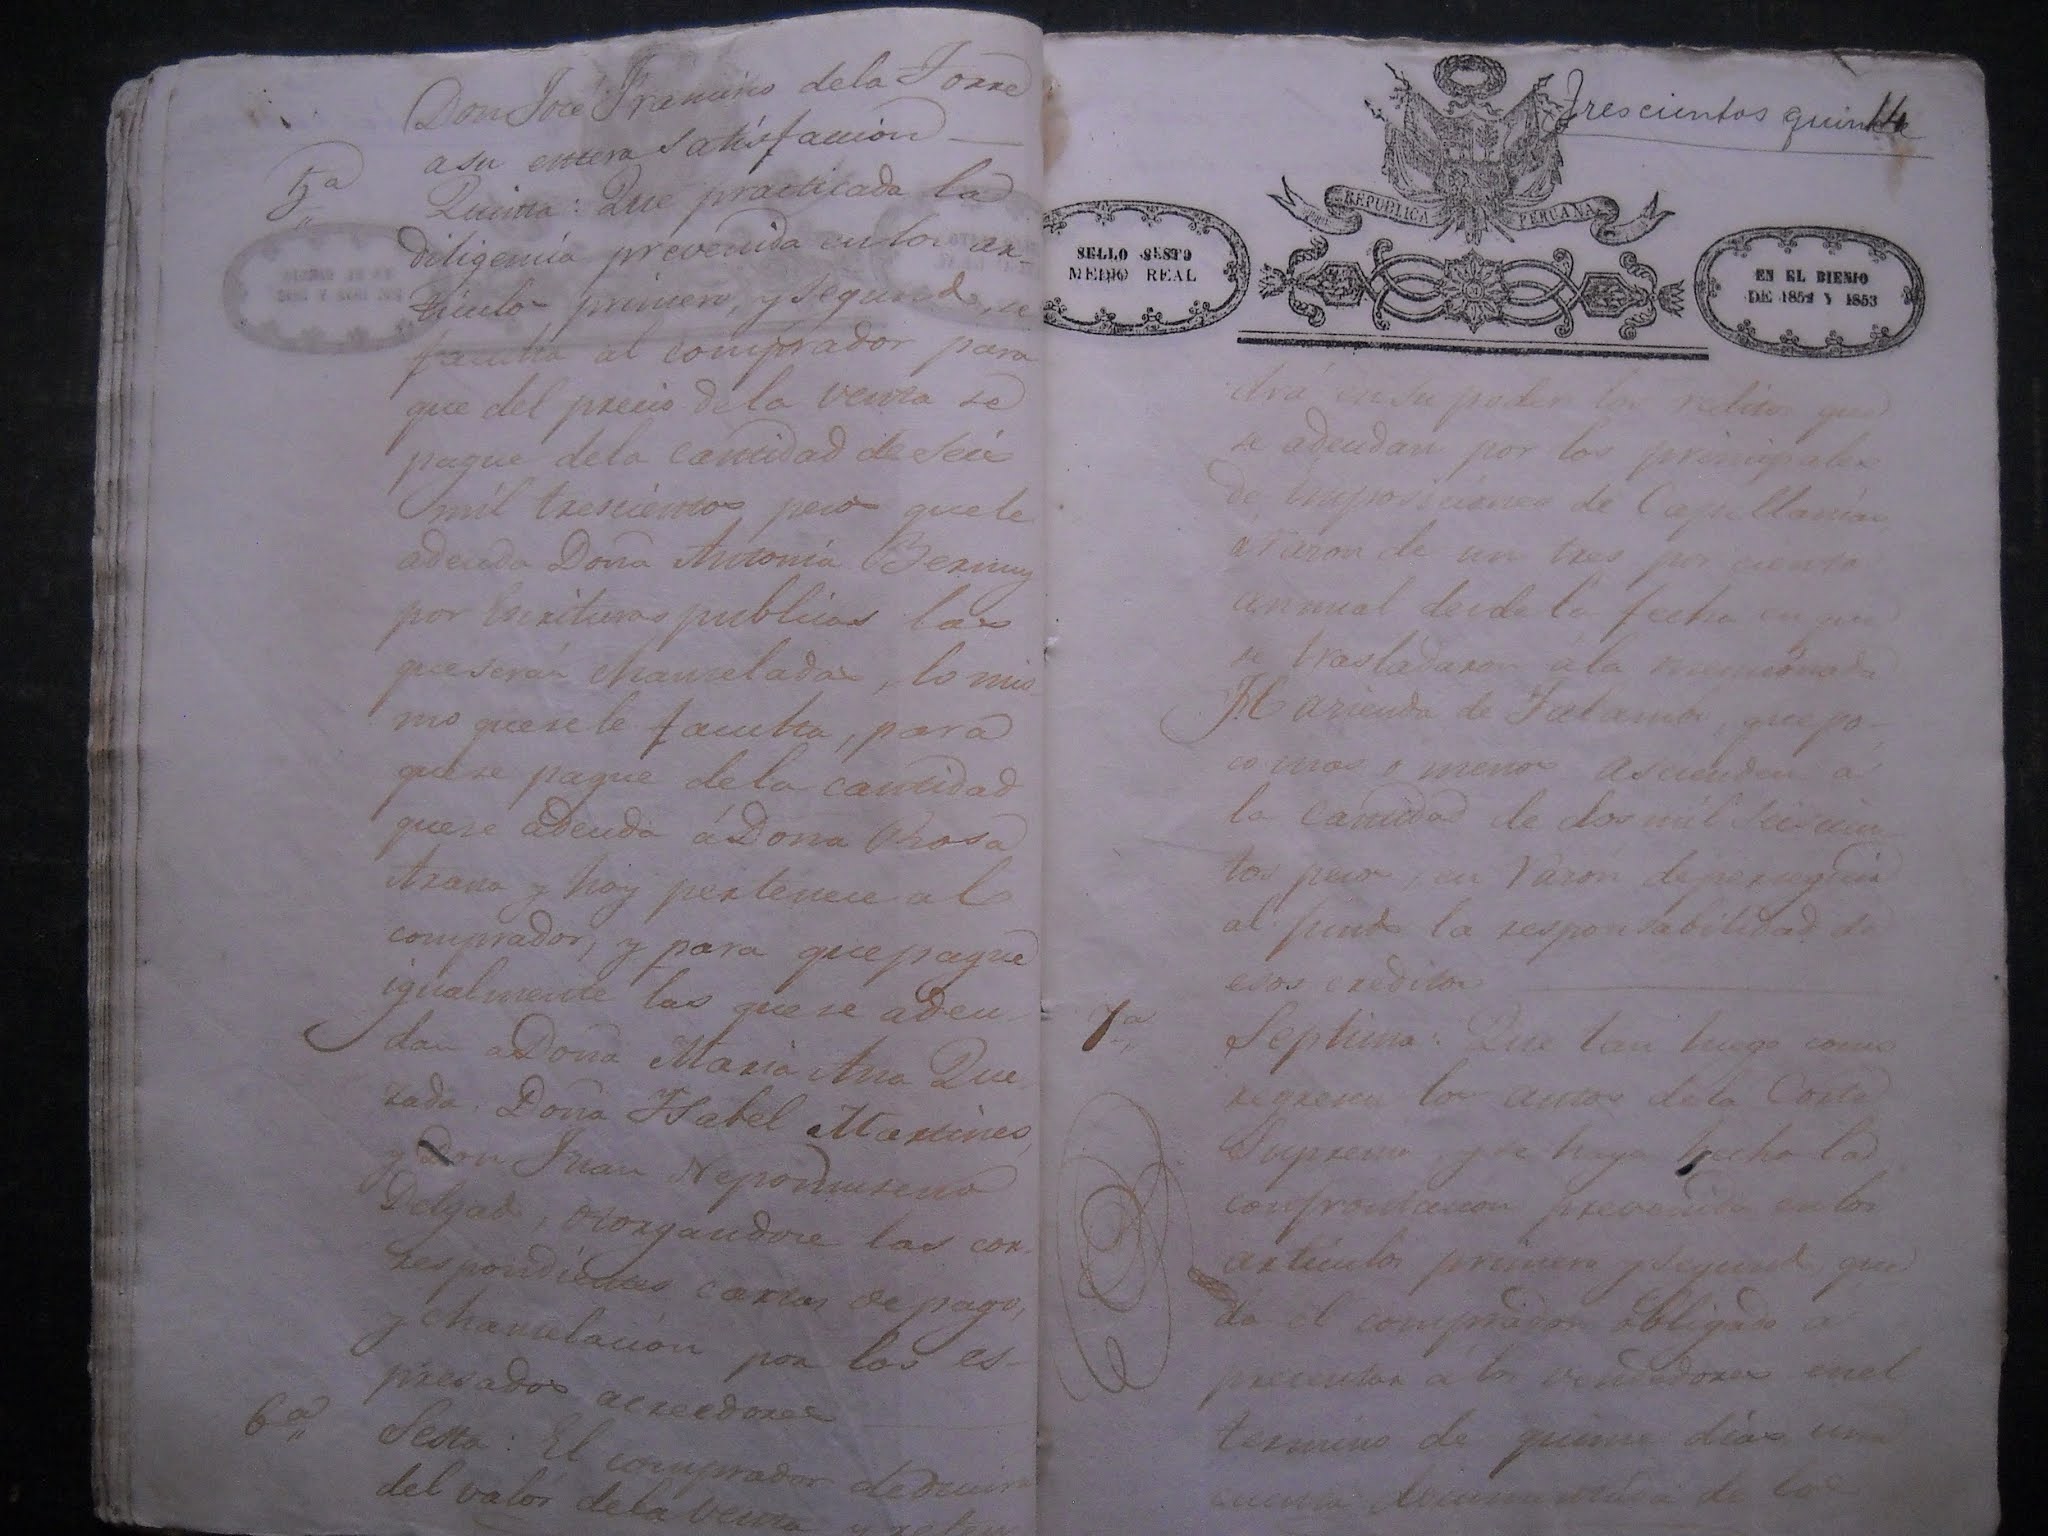 Don José Francisco dela Torre
a su entera satisfaccion
5ª
Quinta: Que practicada la
diligencia prevenida en los ar-
ticulos primero, y segundo, se
faculta al comprador para
que del precio dela venta se
pague dela cantidad de seis
mil trescientos pesos que le
adeuda Doña Antonia Bermuy
por Escrituras publicas las
que serán chanseladas, lo mis
mo que se le faculta, para
que se pague dela cantidad
que se adeuda á Doña Rosa
Arana y hoy pertenece al
comprador, y para que pague
igualmente las que se adeu-
dan a Doña Maria Ana Que
zada, Doña Ysabel Martines,
y Don Juan Nepomuseno
Delgado, otorgandose las cor-
respondientes cartas de pago,
y chanselación por los es-
presados acreedores
6ª
Sesta: El comprador deducirá
del valor dela venta y reten
Trescientos quince
14
REPUBLICA PERUANA
SELLO SESTO
MEDIO REAL
EN EL BIENIO
DE 1852 Y 1853
drá en su poder los reditos que
se adeudan por los principales
de imposiciones de Capellanías
á razon de un tres por ciento
annual desde la fecha en que
se trasladaron á la mencionada
Hacienda de Talambo, que po-
co mas o menos ascienden á
la cantidad de dos mil seiscien-
tos pesos, en razón de perseguir
al fundo la responsabilidad de
esos creditos
7ª
Septima: Que tan luego como
regresen los autos dela Corte
Suprema, y se haya hecho la
confrontacion prevenida en los
articulos primero y segundo, que
da el comprador obligado a
presentar á los vendedores en el
termino de quince días una
cuenta documentada de los